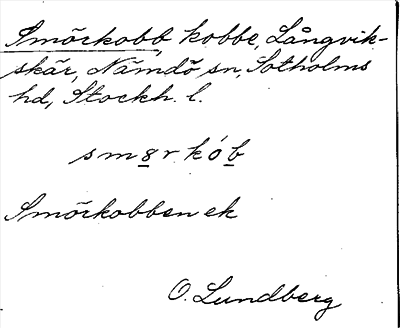 Smörkobb, kobbe, Långvik-
skär, Nämdö sn, Sotholms
hd, Stockh. l.
smȣrkób
Smörkobben ek
O. Lundberg